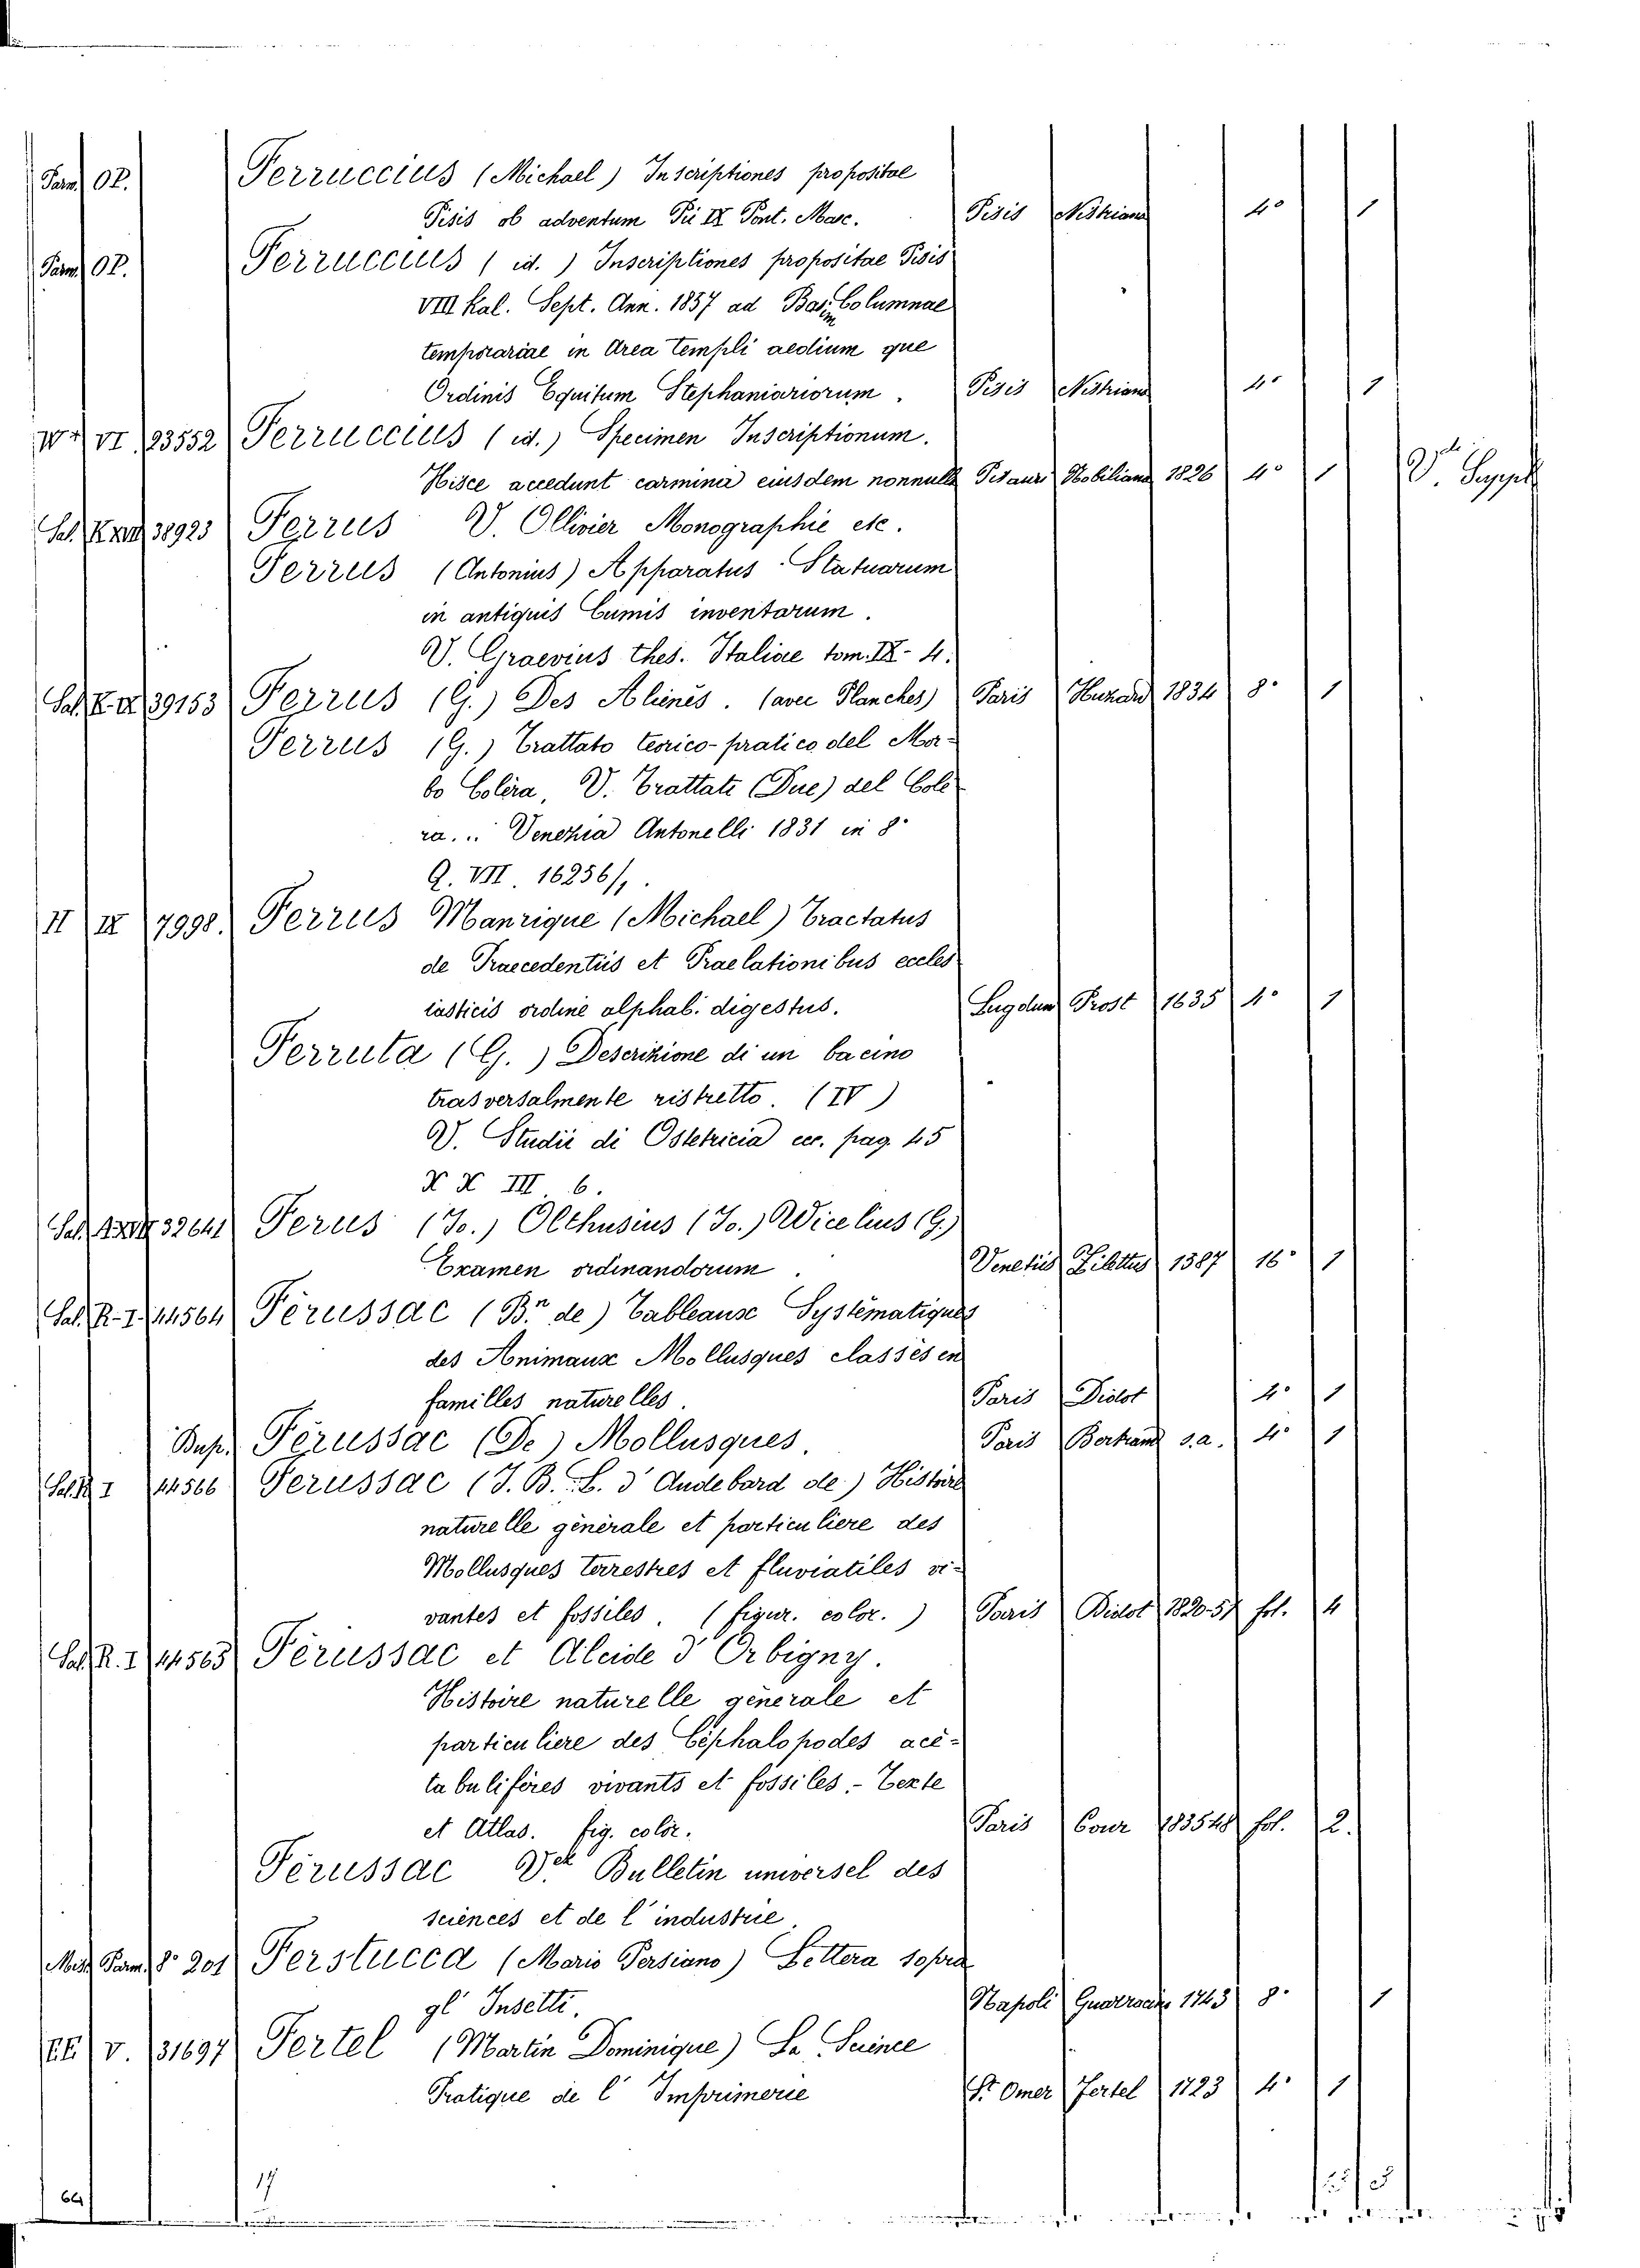 Parm. 02. Ferruccius (Michael) Inscriptiones propositae
Pisis ob adventum Pii IX Pont. Max. Pisis Nistriana 4° 1
Parm. 02. Ferruccius (id.) Inscriptiones propositae Pisis
VIII Kal. Sept. Ann. 1857 ad Basim Columnae
temporariae in Area templi aedium que
Ordinis Equitum Stephaniariorum. Pisis Nistriana 4° 1
VI 23552 Ferruccius (id.) Specimen Inscriptionum.
Hisce accedunt carmina eiusdem nonnulla Pisauri Nobiliana 1826 4° 1 V. Suppl.
Sal. 38923 Ferrus V. Ollivier Monographie etc.
Ferrus (Antonius) Apparatus Statuarum
in antiquis Cumis inventarum.
V. Graevius thes. Italiae tom. IX - 4.
Sal. E. IX 39153 Ferrus (G.) Des Alienés. (avec Planches) Paris Huzard 1834 8° 1
Ferrus (G.) Trattato teorico-pratico del Mor-
bo Colèra, V. Trattati (Due) del Cole
ra... Venezia Antonelli 1831 in 8°
Q. VII. 16256/1.
II IX 7998. Ferrus Manrique (Michael) Tractatus
de Praecedentiis et Praelationibus eccles
iasticis ordine alphab. digestus. Lugdun Prost 1635 4° 1
Ferruta (G.) Descrizione di un bacino
trasversalmente ristretto. (IV)
V. Studii di Ostetricia ecc. pag. 45
X X III. 6.
Sal. 32641 Ferus (Jo.) Olthusius (Jo.) Wicelius (G.)
Examen ordinandorum. Venetiis Zilettus 1587 16° 1
Sal. R. I. 44564 Férussac (B.on de) Tableaux Systématiques
des Animaux Mollusques classés en
familles naturelles. Paris Didot 4° 1
Dup. Férussac (De) Mollusques. Paris Bertrand s.a. 4° 1
Sal. R I 44566 Ferussac (J. B. L. d'Audebard de) Histoire
naturelle générale et particuliere des
Mollusques terrestres et fluviatiles vi-
vantes et fossiles. (figur. color.) Paris Didot 1820-51 fol. 4
Sal. R. I 44565 Férussac et Alcide d'Orbigny.
Histoire naturelle générale et
particuliere des Céphalopodes acé-
tabuliféres vivants et fossiles. - Texte
et Atlas. fig. color. Paris Cour 183548 fol. 2.
Férussac V.ck Bulletin universel des
sciences et de l'industrie.
Misc. Parm. 8° 201 Ferstucca (Mario Persiano) Lettera sopra
gl'Insetti. Napoli 1743 8° 1
V. 31697 Fertel (Martin Dominique) La Science
Pratique de l'Imprimerie St Omer Fertel 1723 4° 1
64 17